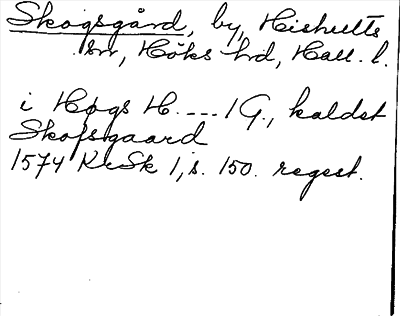 Skogsgård, by, Hishults
sn, Höks hd, Hall. l.
i Høgs H. --- 1 G., kaldet
Skofsgaard
1574 KrSk 1, s. 150. regest.